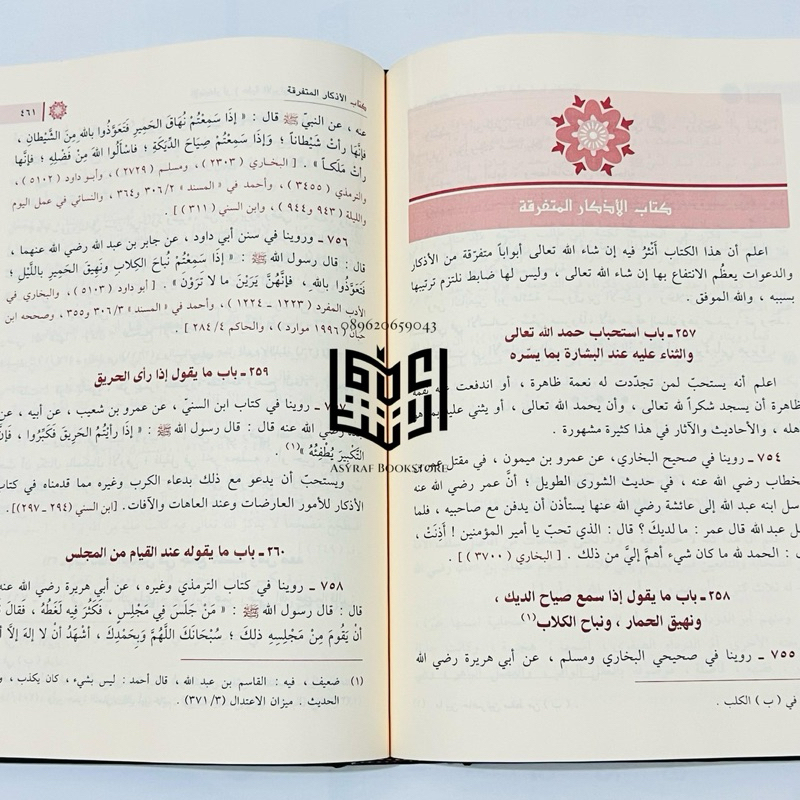 كتاب الأذكار المتفرقة
اعلم أن هذا الكتاب أَنْثُرُ فيه إن شاء الله تعالى أبواباً متفرّقة من الأذكار
والدعوات يعظُم الانتفاع بها إن شاء الله تعالى ، وليس لها ضابط نلتزم ترتيبها
بسببه ، والله الموفق .
٢٥٧ ـ باب استحباب حمد الله تعالى
والثناء عليه عند البشارة بما يسّره
اعلم أنه يستحبّ لمن تجدّدت له نعمة ظاهرة ، أو اندفعت عنه نقمة
ظاهرة أن يسجد شكراً لله تعالى ، وأن يحمد الله تعالى ، أو يثني عليه بما هو
أهله ، والأحاديث والآثار في هذا كثيرة مشهورة .
٧٥٤ ـ روينا في صحيح البخاري، عن عمرو بن ميمون ، في مقتل عمر
الخطاب رضي الله عنه ، في حديث الشورى الطويل ؛ أنَّ عمر رضي الله عنه
سل ابنه عبد الله إلى عائشة رضي الله عنها يستأذن أن يدفن مع صاحبيه ، فلما
ل عبد الله قال عمر : ما لديكَ ؟ قال : الذي تحبّ يا أمير المؤمنين ! أَذِنَتْ ،
: الحمد لله ما كان شيء أهمَّ إليَّ من ذلك . [ البخاري ( ٣٧٠٠ ) ] .
٢٥٨ ـ باب ما يقول إذا سمع صياح الديك ،
ونهيق الحمار ، ونباح الكلاب(١)
٧٥٥ ـ روينا في صحيحي البخاري ومسلم ، عن أبي هريرة رضي الله
في ( ب ) الكلب .
كتاب الأذكار المتفرقة
٤٦١
عنه ، عن النبيّ ﷺ قال : « إِذَا سَمِعْتُمْ نُهَاقَ الحَمِيرِ فَتَعَوَّذُوا باللهِ مِنَ الشَّيْطانِ ،
فإنَّهَا رأتْ شَيْطاناً ؛ وَإِذَا سَمِعْتُمْ صِيَاحَ الدِّيَكَةِ ؛ فاسألُوا اللهَ مِنْ فَضْلِهِ ؛ فإنَّها
رأتْ مَلَكاً » . [ البخاري ( ٢٣٠٣ ) ، ومسلم ( ٢٧٢٩ ) ، وأبو داود ( ٥١٠٢ ) ،
والترمذي ( ٣٤٥٥ ) ، وأحمد في « المسند » ٢ / ٣٠٦ و ٣٦٤ ، والنسائي في عمل اليوم
والليلة ( ٩٤٣ و ٩٤٤ ) ، وابن السني ( ٣١١ ) ] .
٧٥٦ ـ وروينا في سنن أبي داود ، عن جابر بن عبد الله رضي الله عنهما ،
قال : قال رسول الله ﷺ : « إِذَا سَمِعْتُمْ نُبَاحَ الكِلابِ وَنَهِيقَ الحَمِيرِ باللَّيْلِ ؛
فَتَعَوَّذُوا باللهِ ، فإنَّهُنَّ يَرَيْنَ ما لا تَرَوْنَ » . [ أبو داود ( ٥١٠٣ ) ، والبخاري في
الأدب المفرد ( ١٢٢٣ ـ ١٢٢٤ ) ، وأحمد في « المسند » ٣ / ٣٠٦ و ٣٥٥ ، وصححه ابن
حبان ( ١٩٩٦ موارد ) ، والحاكم ٤ / ٢٨٤ ] .
٢٥٩ ـ باب ما يقول إذا رأى الحريق
روينا في كتاب ابن السنيّ ، عن عمرو بن شعيب ، عن أبيه ، عن
رضي الله عنه قال : قال رسول الله ﷺ : « إِذَا رأيْتُمُ الحَرِيقَ فَكَبِّرُوا ، فإنَّ
التَّكْبِيرَ يُطْفِئُهُ »(١) .
ويستحبّ أن يدعو مع ذلك بدعاء الكرب وغيره مما قدمناه في كتاب
الأذكار للأمور العارضات وعند العاهات والآفات . [ابن السني (٢٩٤ ـ ٢٩٧)].
٢٦٠ ـ باب ما يقوله عند القيام من المجلس
٧٥٨ ـ روينا في كتاب الترمذي وغيره ، عن أبي هريرة رضي الله عنه
قال : قال رسول الله ﷺ : « مَنْ جَلَسَ فِي مَجْلِسٍ ، فَكَثُرَ فِيهِ لَغَطُهُ ، فَقالَ
أنْ يَقُومَ مِنْ مَجْلِسِهِ ذلكَ ؛ سُبْحَانَكَ اللَّهُمَّ وَبِحَمْدِكَ ، أشْهَدُ أنْ لا إلهَ إلَّا
(١) ضعيف ، فيه : القاسم بن عبد الله ، قال أحمد : ليس بشيء ، كان يكذب ،
الحديث . ميزان الاعتدال (٣/ ٣٧١) .
089620659043
ASYRAF BOOKSTORE